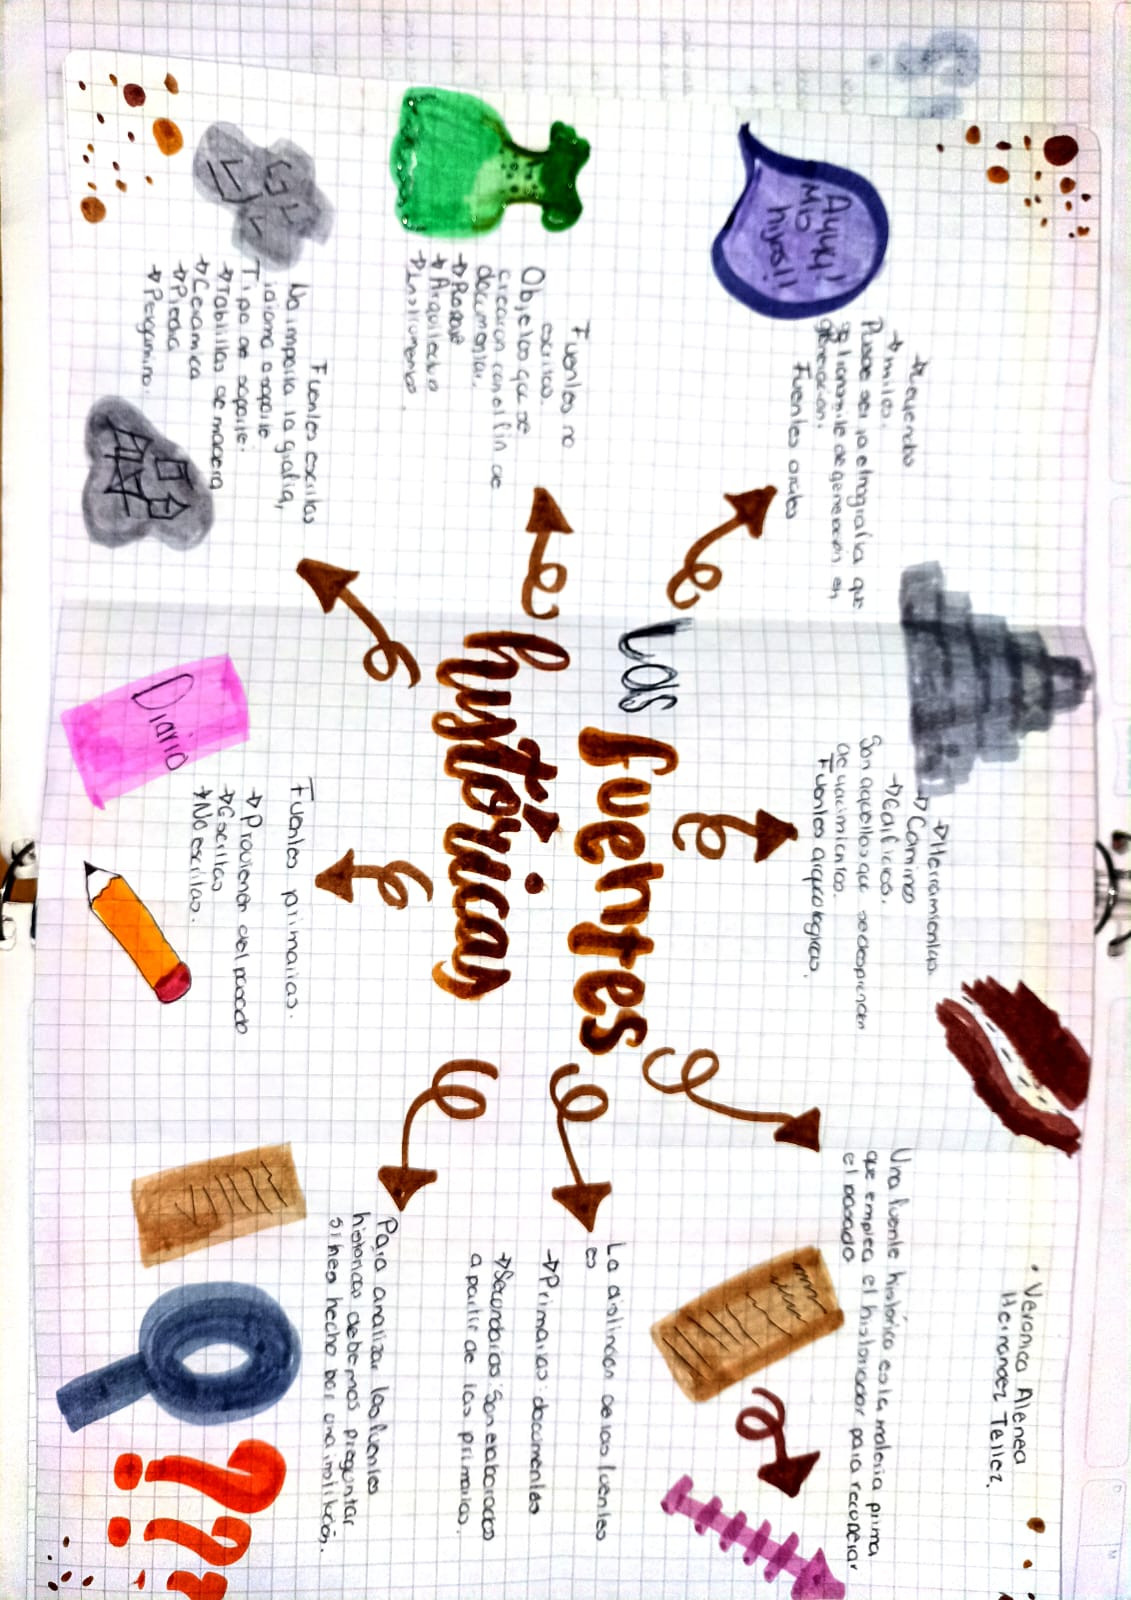 • Veronica Alenea
Hernandez Tellez.
→Leyendas
→mitos.
Puede ser la etnografia que
se transmite de generación en
generación.
Fuentes orales
Ayyyy!
Mis
hijos!!
→Herramientas.
→Caminos
→Edificios.
Son aquellos que se desprenden
de yacimientos.
Fuentes arqueologicas.
Una fuente histórica es la materia prima
que emplea el historiador para recuperar
el pasado
Las
fuentes
históricas
Fuentes no
escritas.
Objetos que se
crearon con el fin de
documentar.
→Ropaje
→Arquitectura
→Instrumentos.
La distinción de las fuentes
es
→Primarias: documentos
→Secundarias: Son elaboradas
a partir de las primarias.
Fuentes escritas
No importa la grafía,
idioma o soporte
Tipo de soporte:
→Tablillas de madera
→Ceramica
→Piedra
→Pergamino.
Fuentes primarias.
→Provienen del pasado
→Escritas
→No escritas.
Diario
Para analizar las fuentes
historicas debemos preguntar
si nos hecho por una institución.
???